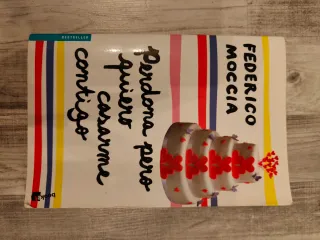 BESTSELLER
FEDERICO
MOCCIA
Perdona pero
quiero
casarme
contigo